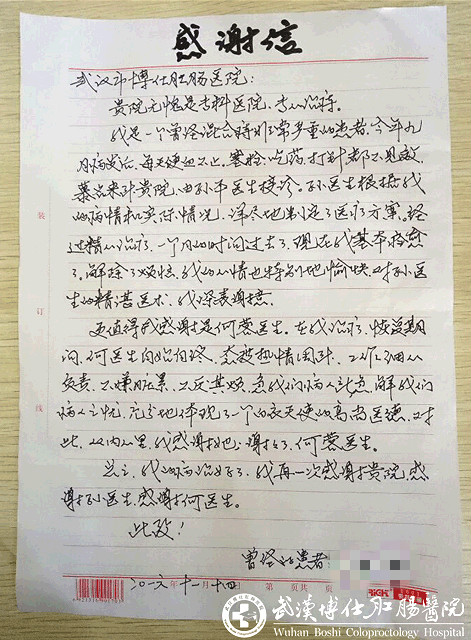 感谢信
武汉市博仕肛肠医院：
贵院无愧是专科医院，专心治病。
我是一个曾经混合痔非常严重的患者，今年九
月病发后，每天便血不止，塞栓、吃药、打针都不见效，
慕名来到贵院，由孙平医生接诊。孙医生根据我
的病情和实际情况，详尽地制定了医疗方案。经
过精心治疗，一个月的时间过去了，现在我基本痊愈
了。解除了烦恼，我的心情也特别地愉快，对孙医
生的精湛医术，我深表谢意。
更值得我感谢是何蓉医生。在我治疗、恢复期
间，何医生自始自终，态度热情周到，工作细心
负责，不嫌脏累，不厌其烦，急我们病人所急，解我们
病人之忧，充分地体现了一个白衣天使的高尚医德，对
此，从内心里，我感谢她，谢谢了，何蓉医生。
总之，我的病治好了，我再一次感谢贵院，感
谢孙医生，感谢何医生。
此致！
曾经的患者
二〇一六年十一月十四
第 页共 页
装
订
线
武漢博仕肛腸醫院
Wuhan Boshi Coloproctology Hospital